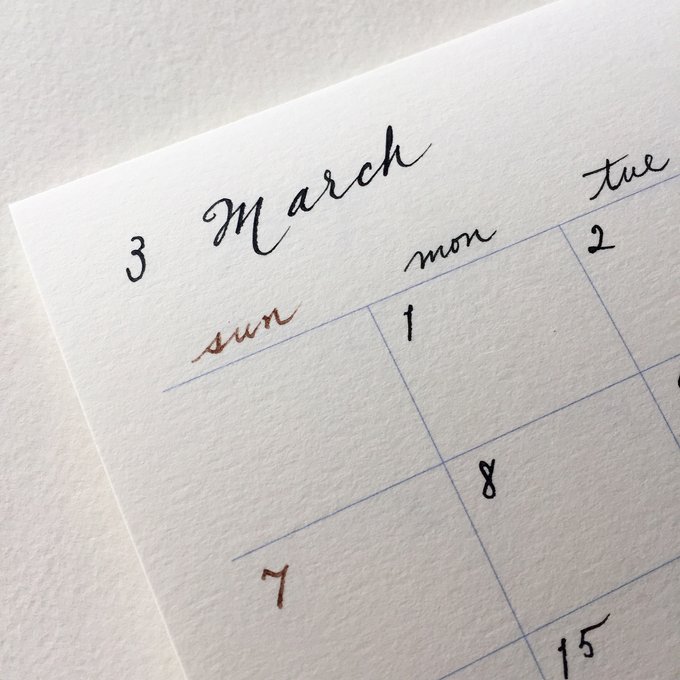 3 March
sun mon tue
1 2
7 8
15